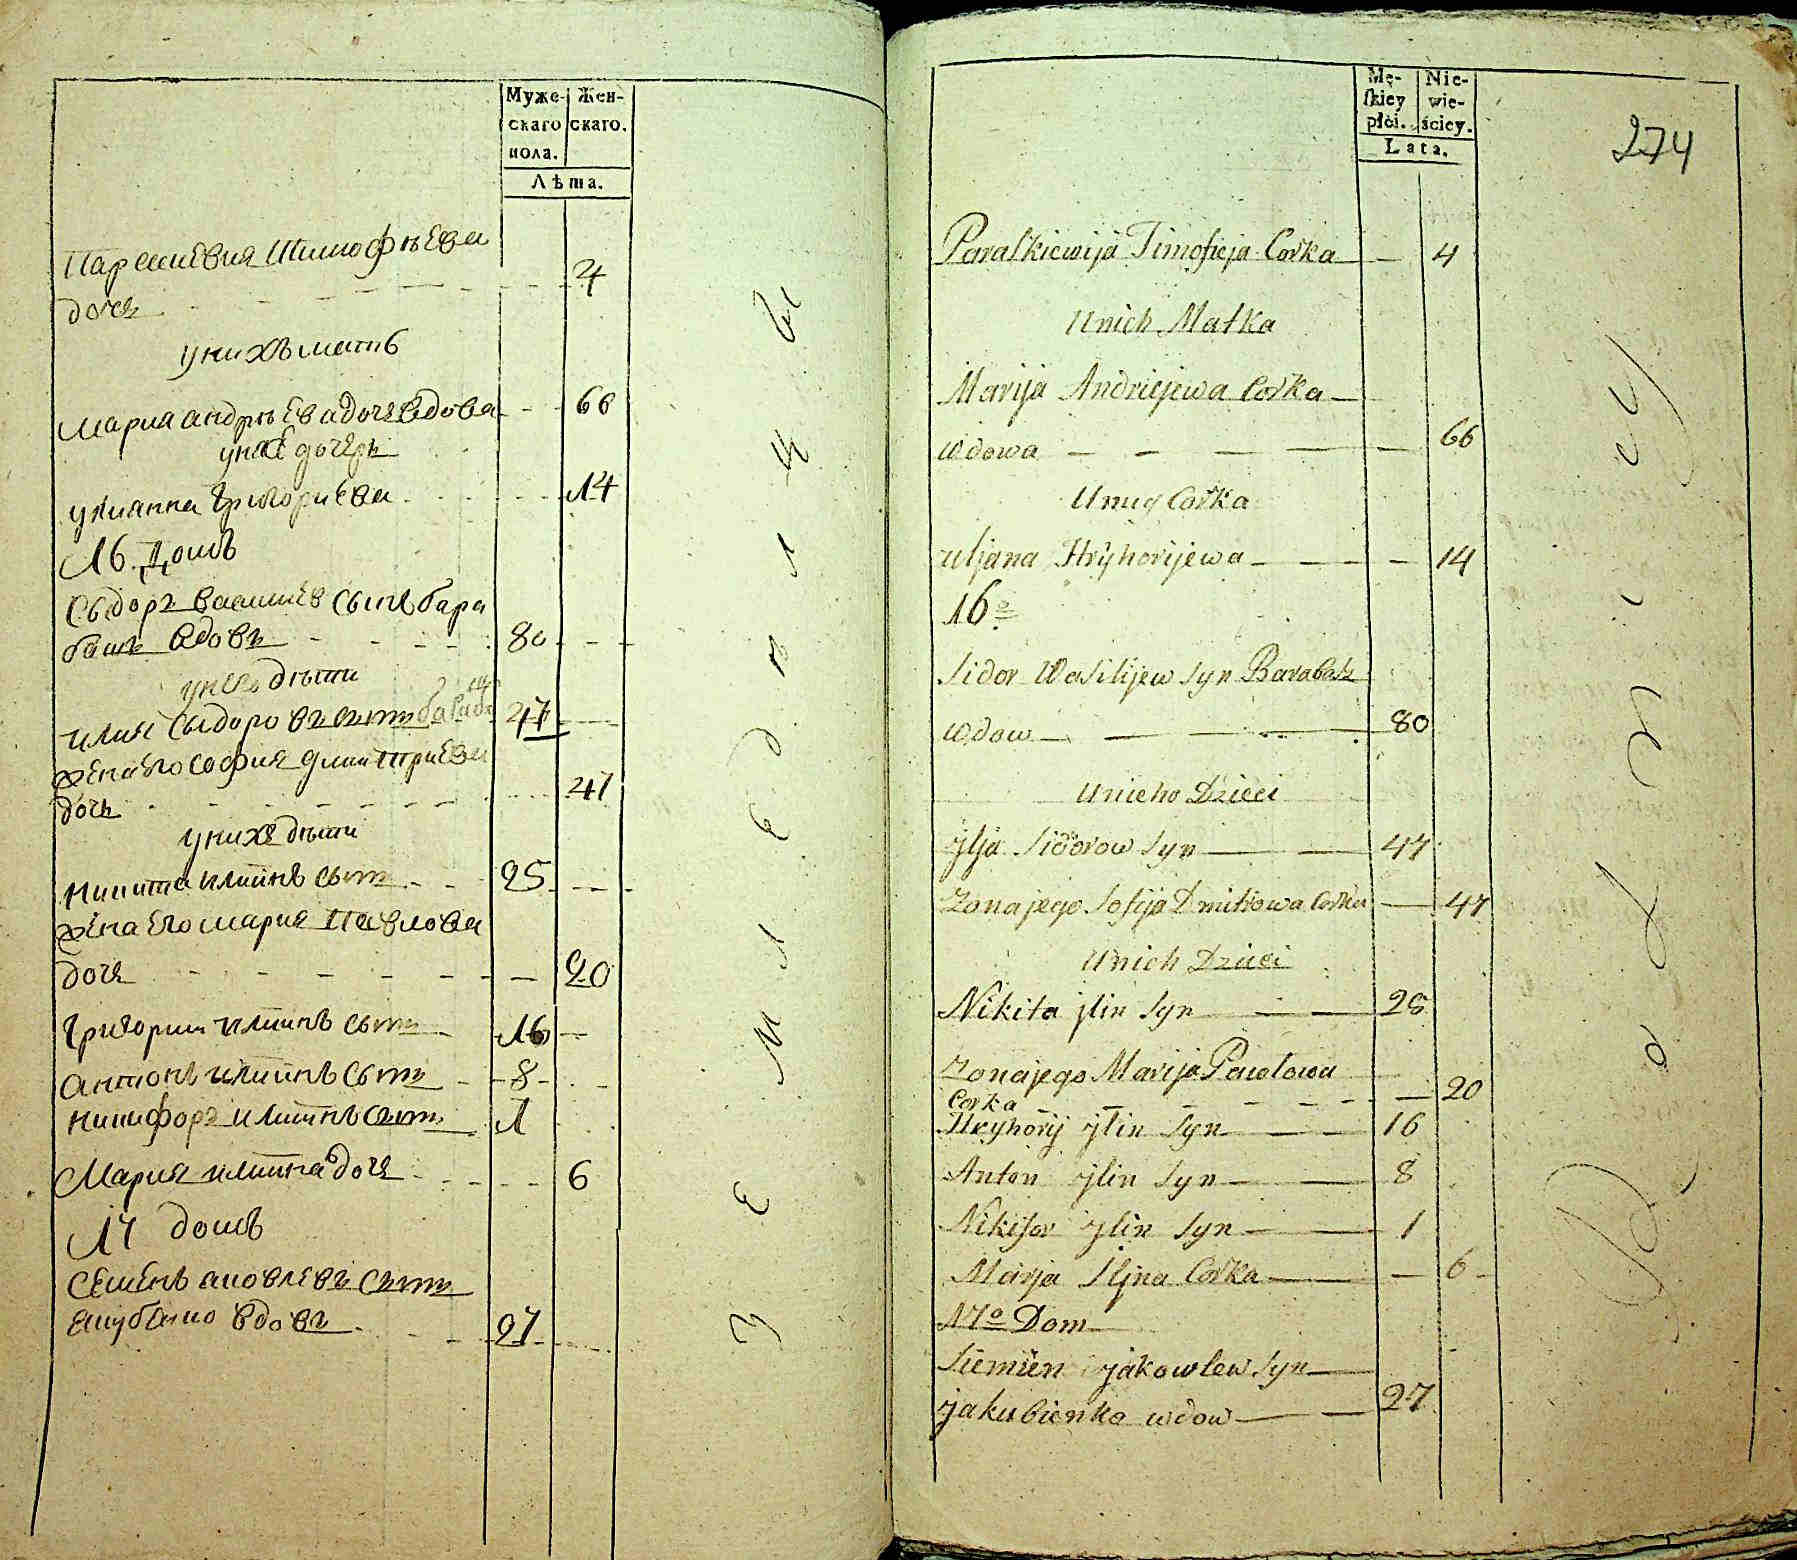 Муже-
скаго
пола.
Жен-
скаго.
Лѣта.
Параскевия Тимофѣева
дочь 4
у нихъ мать
Мария андрѣева дочь вдова 66
у нее дочерь
улианна григориева 14
16 Домъ
Сыдоръ василиев сынъ бара
башъ вдовъ 80
у него дѣти
илия Сыдоровъ сынъ 47
жена его София дмитриева
дочь 47
у нихъ дѣти
никита илиинъ сынъ 25
жена его мария Павлова
дочь 20
григорий илиинъ сынъ 16
антонъ илиинъ сынъ 8
никифоръ илиинъ сынъ 1
Мария илиина дочь 6
17 домъ
Семенъ яковлевъ сынъ
якубенко вдовъ 27
земледѣлцы
Mę-
ſkiey
płci.
Nie-
wie-
ściey.
Lata.
274
Paraſkiewija Timofieja Corka 4
Unich Matka
Marija Andriejewa Corka
wdowa 66
Uniey Corka
uljana Hryhorijewa 14
16o
Sidor Waſilijew Syn Barabaſz
wdow 80
Unieho Dzieci
jlja Sidorow Syn 47
Zona jego Sofija Dmitrowa Corka 47
Unich Dzieci
Nikita jlin Syn 25
Zona jego Marija Pawlowa
Corka 20
Hryhory jlin Syn 16
Anton jlin Syn 8
Nikifor jlin Syn 1
Marja Iljna Corka 6
17o Dom
Siemien jakowlew Syn
jakubienko wdow 27
Rolnicy